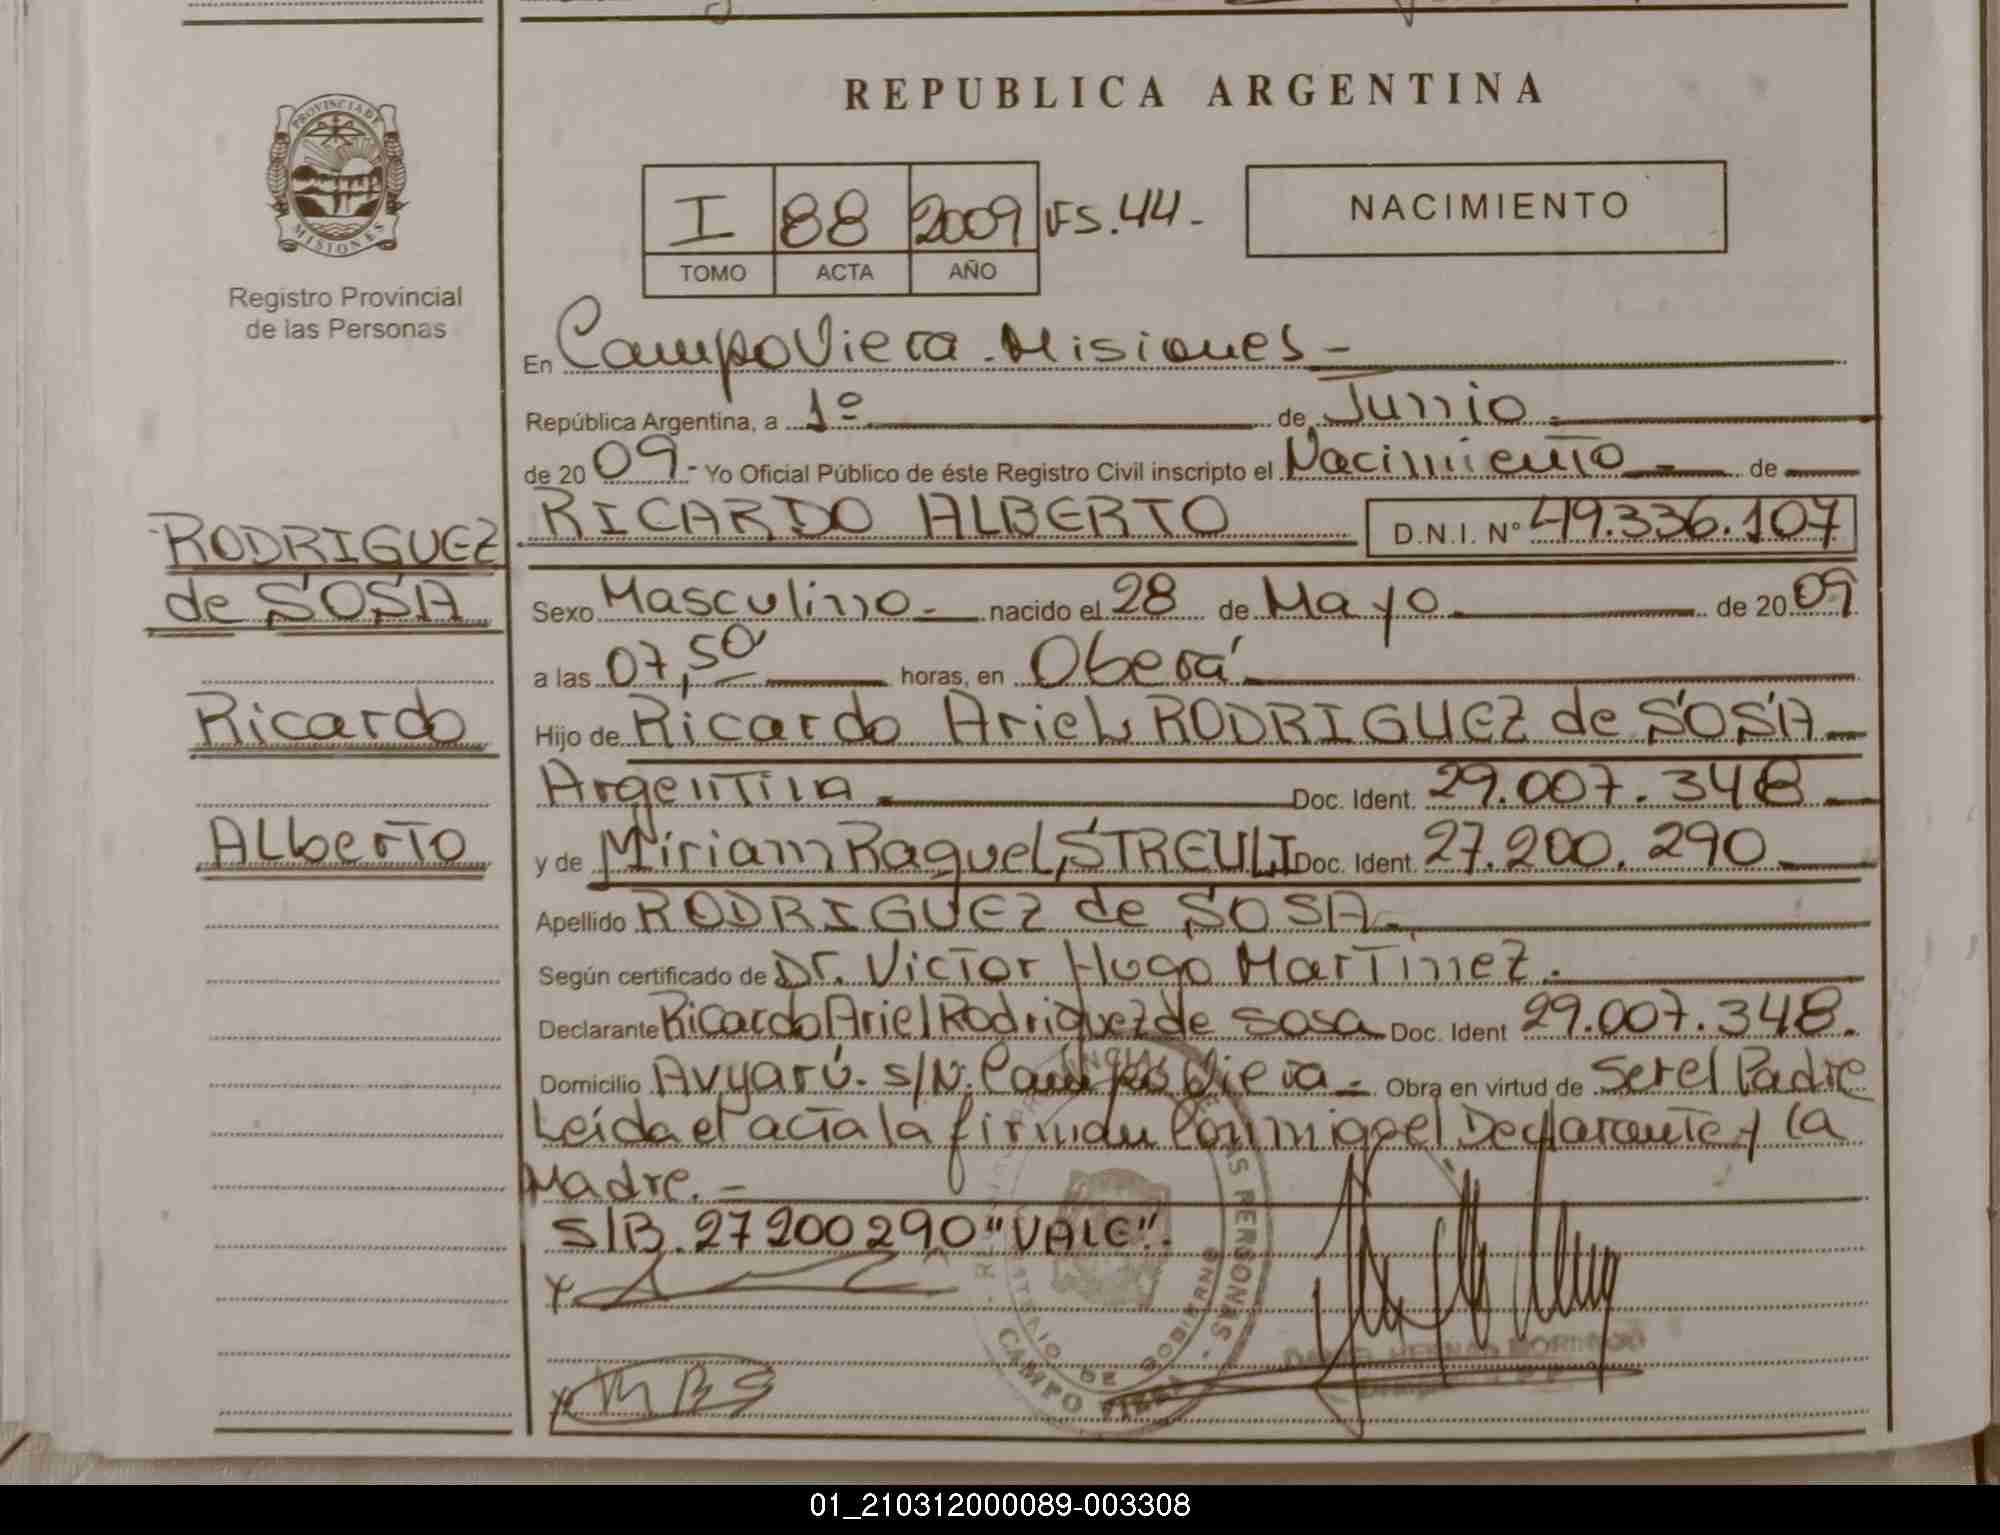 REPUBLICA ARGENTINA
PROVINCIA DE
MISIONES
Registro Provincial
de las Personas
I 88 2009 FS.44.-
TOMO ACTA AÑO
NACIMIENTO
En Campo Viera.Misiones-
República Argentina, a 1º de Junio.
de 20 09.- Yo Oficial Público de éste Registro Civil inscripto el Nacimiento de
RICARDO ALBERTO D.N.I. Nº 49.336.107
RODRIGUEZ
de SOSA
Ricardo
Alberto
Sexo Masculino.- nacido el 28 de Mayo de 20 09
a las 07,50 horas, en Oberá
Hijo de Ricardo Ariel RODRIGUEZ de SOSA
Argentina Doc. Ident. 29.007.348
y de Miriam Raquel, STREULI Doc. Ident. 27.200.290
Apellido RODRIGUEZ de SOSA.
Según certificado de Dr. Victor Hugo Martinez.
Declarante Ricardo Ariel Rodriguez de Sosa Doc. Ident 29.007.348.
Domicilio Av yarú. s/N. Campo Viera- Obra en virtud de Ser el Padre
Leída el acta la firman Conmigo el Declarante y la
Madre.-
S/B. 27200290 "VALE".
CAMPO VIERA
01_210312000089-003308